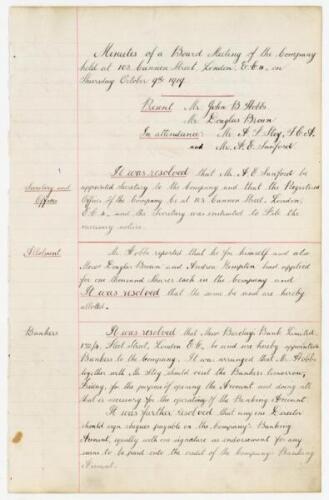 Minutes of a Board Meeting of the Company
held at 103 Cannon Street, London, E.C.4, on
Thursday October 9th 1919.
Present Mr John B Hobbs.
Mr Douglas Brown
In attendance: Mr A. F. Sley, F.C.A.
and Mr. A. E. Sanford.
Secretary and
Offices
It was resolved that Mr A. E. Sanford be
appointed Secretary to the Company and that the Registered
Office of the Company be at 103 Cannon Street, London,
E.C.4, and the Secretary was instructed to file the
necessary notice.
Allotment
Mr. Hobbs reported that he for himself and also
Messrs Douglas Brown and Andrew had applied
for one thousand shares each in the Company and
It was resolved that the same be and are hereby
allotted.
Bankers
It was resolved that Messrs Barclays Bank Limited,
Fleet Street, London E.C. be and are hereby appointed
Bankers to the Company. It was arranged that Mr. Hobbs
together with Mr Sley should visit the Bankers tomorrow,
Friday, for the purpose of opening the Account and doing all
that is necessary for the operating of the Banking Account.
It was further resolved that any one Director
should sign cheques payable on the Company's Banking
Account, equally with one signature as endorsement for any
sums to be paid into the credit of the Company's Banking
Account.